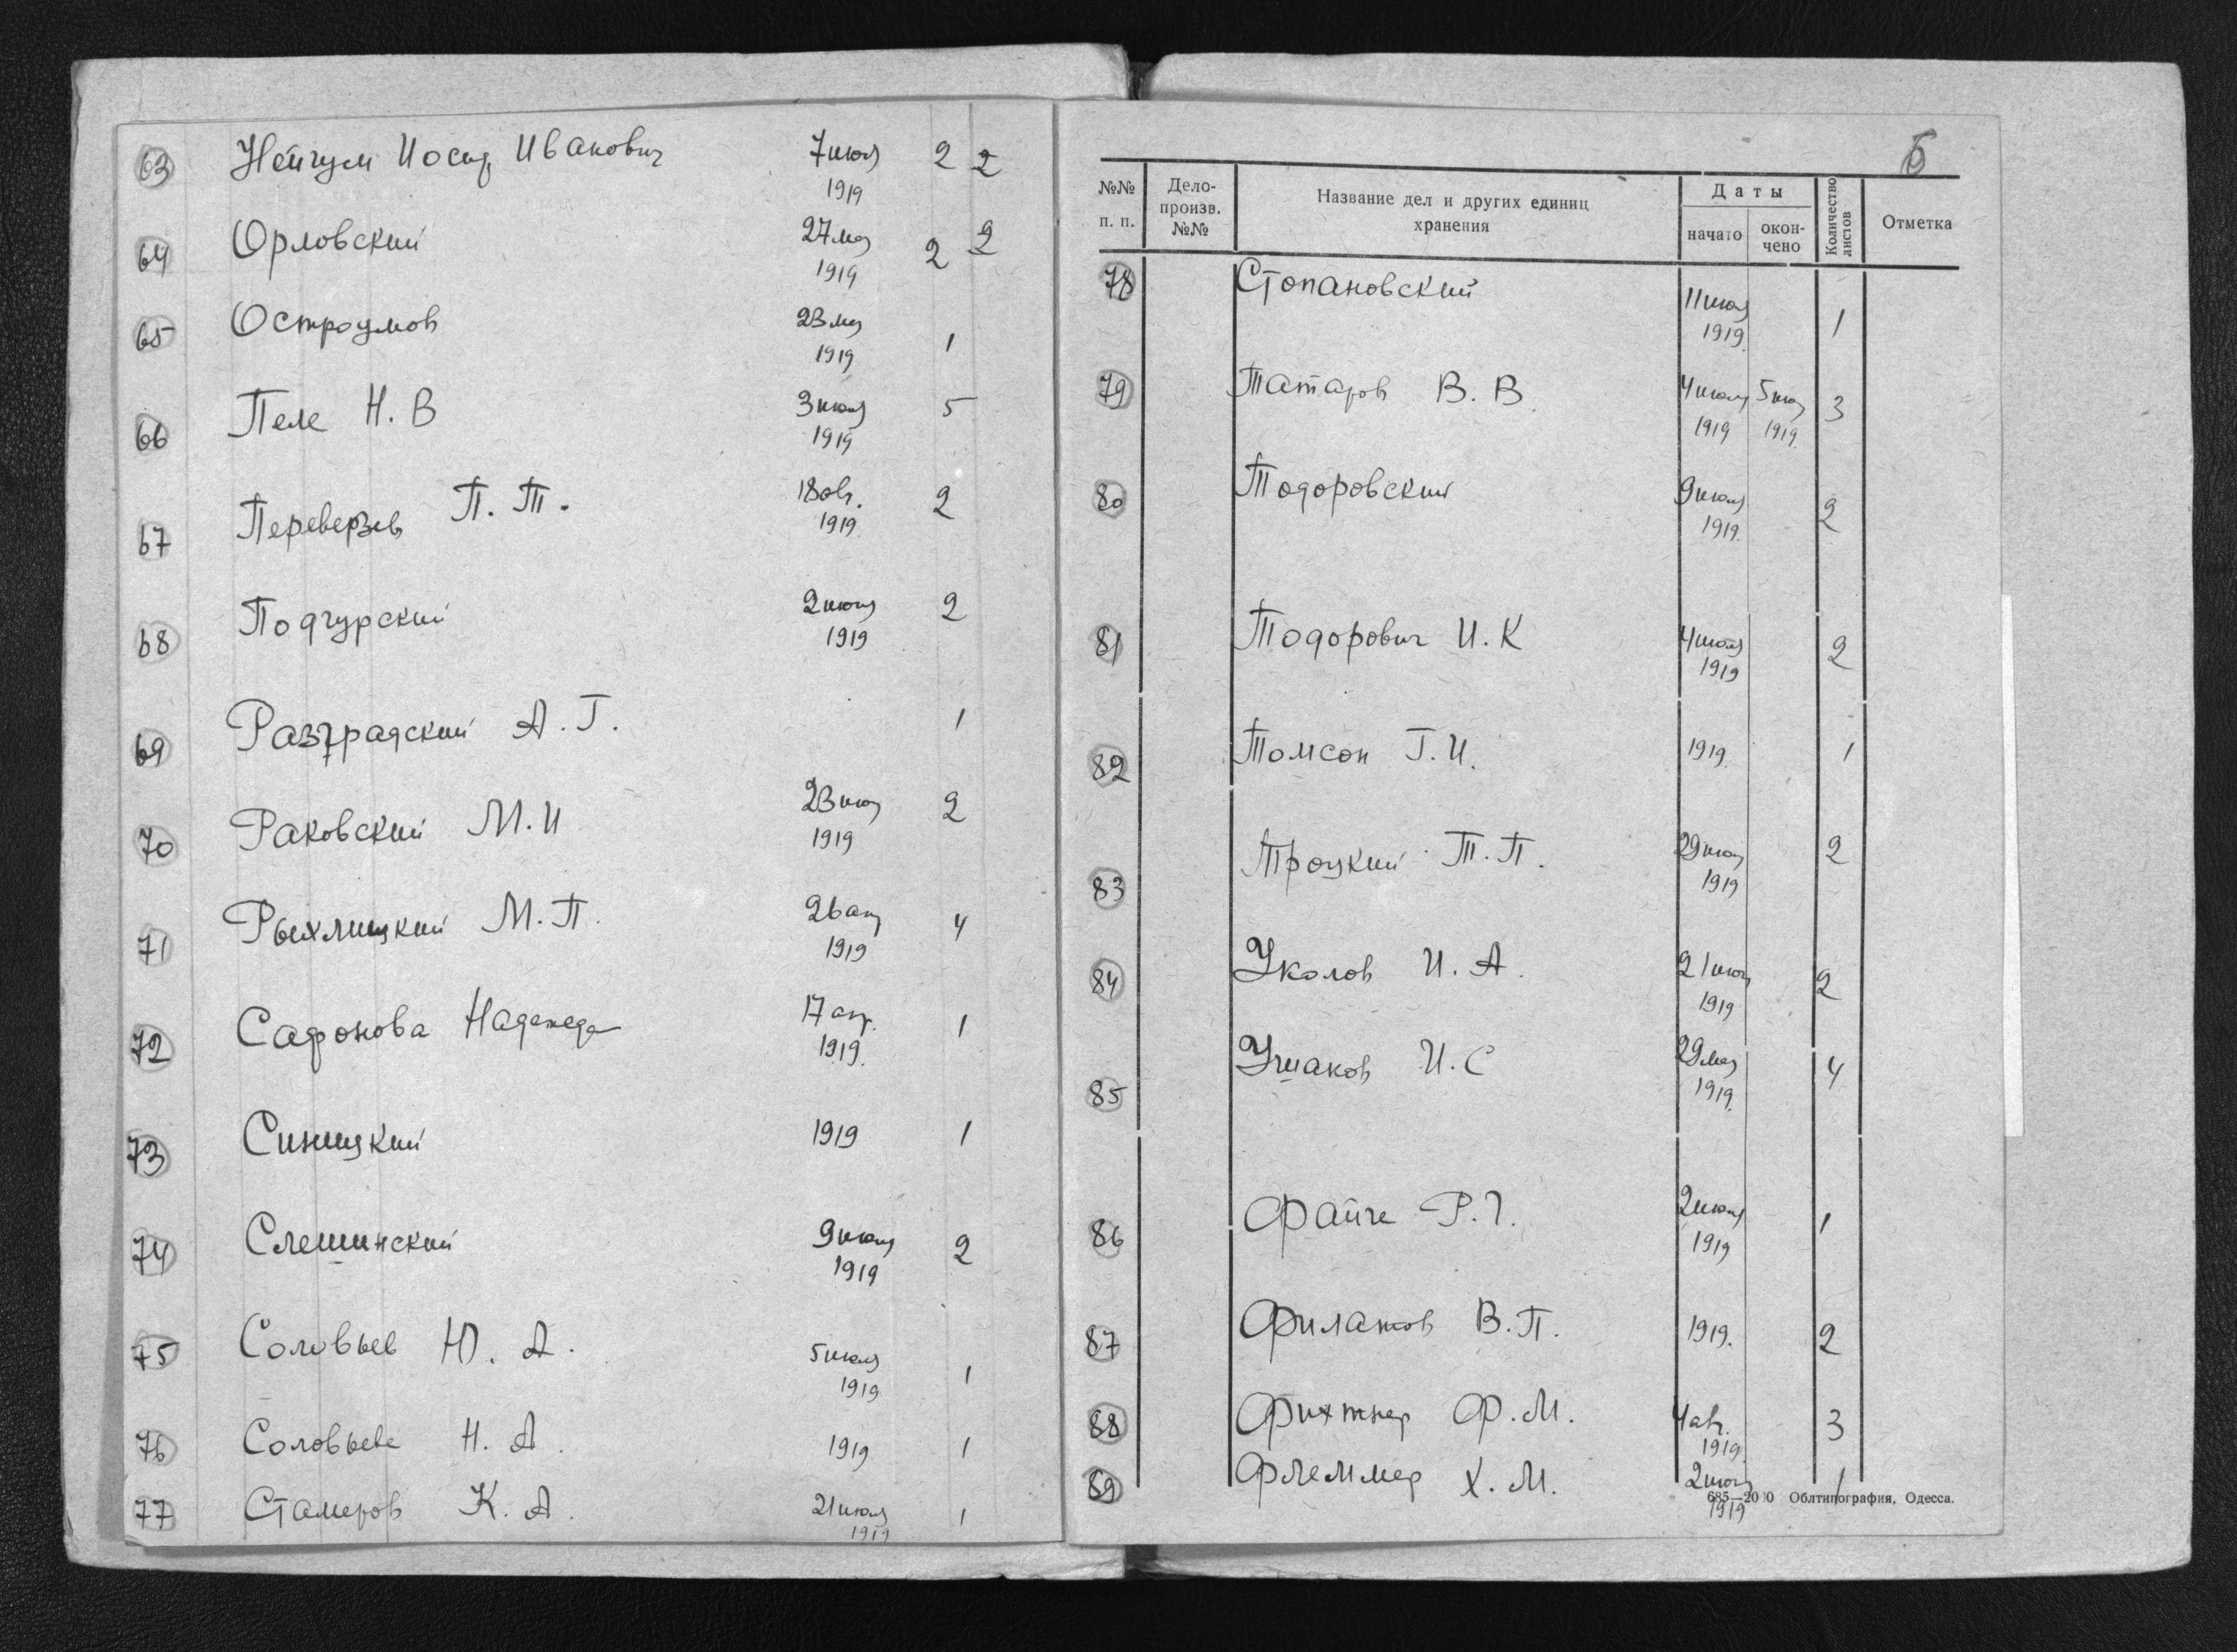 63 Нейчум Иосиф Иванович 7 июля 1919 2 2
64 Орловский 27 мая 1919 2 2
65 Остроумов 23 мая 1919 1
66 Пеле Н. В 3 июля 1919 5
67 Переверзев П. Т. 18 авг. 1919. 2
68 Подгурский 2 июля 1919 2
69 Разградский А. Г. 1
70 Раковский М. И 23 1919 2
71 Рыхлицкий М. П. 26 апр 1919 4
72 Сафонова Надежда 17 апр. 1919. 1
73 Синицкий 1919 1
74 Слешинский 9 июля 1919 2
75 Соловьев Ю. А. 5 июля 1919 1
76 Соловьева Н. А. 1919 1
77 Стамеров К. А. 21 июля 1919 1
5
№№ п. п.
Дело-произв. №№
Название дел и других единиц хранения
Даты
начато
окон-чено
Количество листов
Отметка
78 Стопановский 11 июля 1919. 1
79 Татаров В. В. 4 июля 1919 5 июл 1919. 3
80 Тодоровский 9 июля 1919. 2
81 Тодорович И. К 4 июля 1919 2
82 Томсон Г. И. 1919. 1
83 Троцкий Т. П. 29 1919 2
84 Уколов И. А. 21 1919 2
85 Ушаков И. С 29 мая 1919. 4
86 Файге Р. Г. 2 июля 1919 1
87 Филатов В. П. 1919. 2
88 Фихтнер Ф. М. 4 авг. 1919. 3
89 Флеммер Х. М. 2 1919 1
685—2000 Облтипография, Одесса.